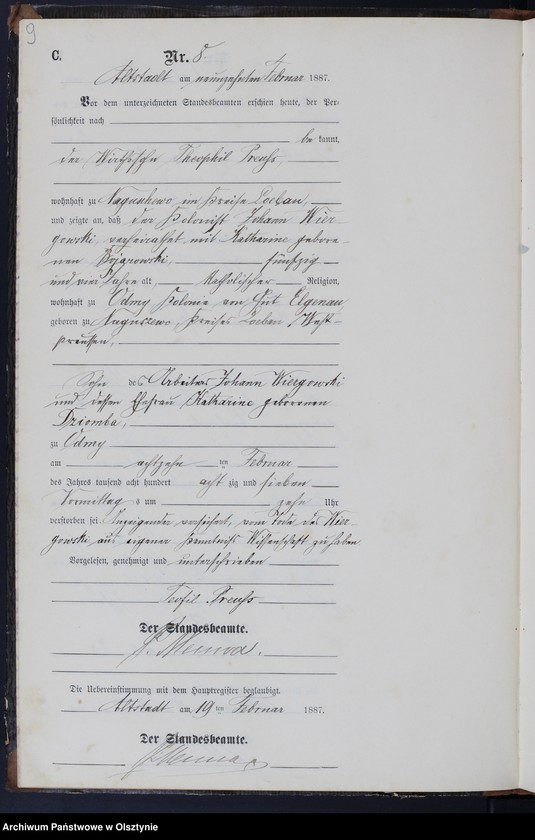 9
C.
Nr. 8.
Altstadt am neunzehnten Februar 1887.
Vor dem unterzeichneten Standesbeamten erschien heute, der Per-
sönlichkeit nach
be kannt,
der Wirthssohn Theophil Preuss,
wohnhaft zu Naguszewo im Kreise Loebau,
und zeigte an, daß der Kolonist Johann Wier-
gowski, verheirathet mit Katharine gebore-
nen Bojarowski, fünfzig
und vier Jahre alt, katholischer Religion,
wohnhaft zu Odmy Kolonie von Gut Elgenau,
geboren zu Naguszewo, Kreises Loebau, West-
preussen,
Sohn des Arbeiters Johann Wiergowski
und dessen Ehefrau Katharine geborenen
Dziomba,
zu Odmy
am achtzehn ten Februar
des Jahres tausend acht hundert acht zig und sieben
Vormittag s um zehn Uhr
verstorben sei. Anzeigender versichert, vom Tode des Wier-
gowski aus eigener Wissenschaft zu haben
Vorgelesen, genehmigt und unterschrieben
Teofil Preuss
Der Standesbeamte.
Die Uebereinstimmung mit dem Hauptregister beglaubigt.
Altstadt am 19 ten Februar 1887.
Der Standesbeamte.
Archiwum Państwowe w Olsztynie